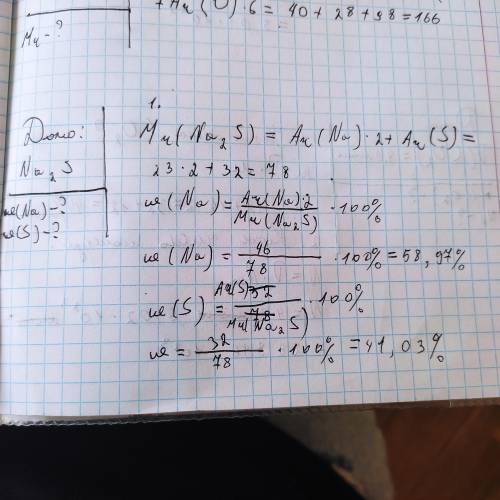 + Ar(O)·6 = 40 + 28 + 98 = 166
Mr - ?
1.
Дано:
Na₂S
w(Na) - ?
w(S) - ?
Mr(Na₂S) = Ar(Na)·2 + Ar(S) =
23·2 + 32 = 78
w(Na) = Ar(Na)·2 / Mr(Na₂S) · 100%
w(Na) = 46 / 78 · 100% = 58,97%
w(S) = Ar(S) 32 / 78 Mr(Na₂S) · 100%
w = 32 / 78 · 100% = 41,03%